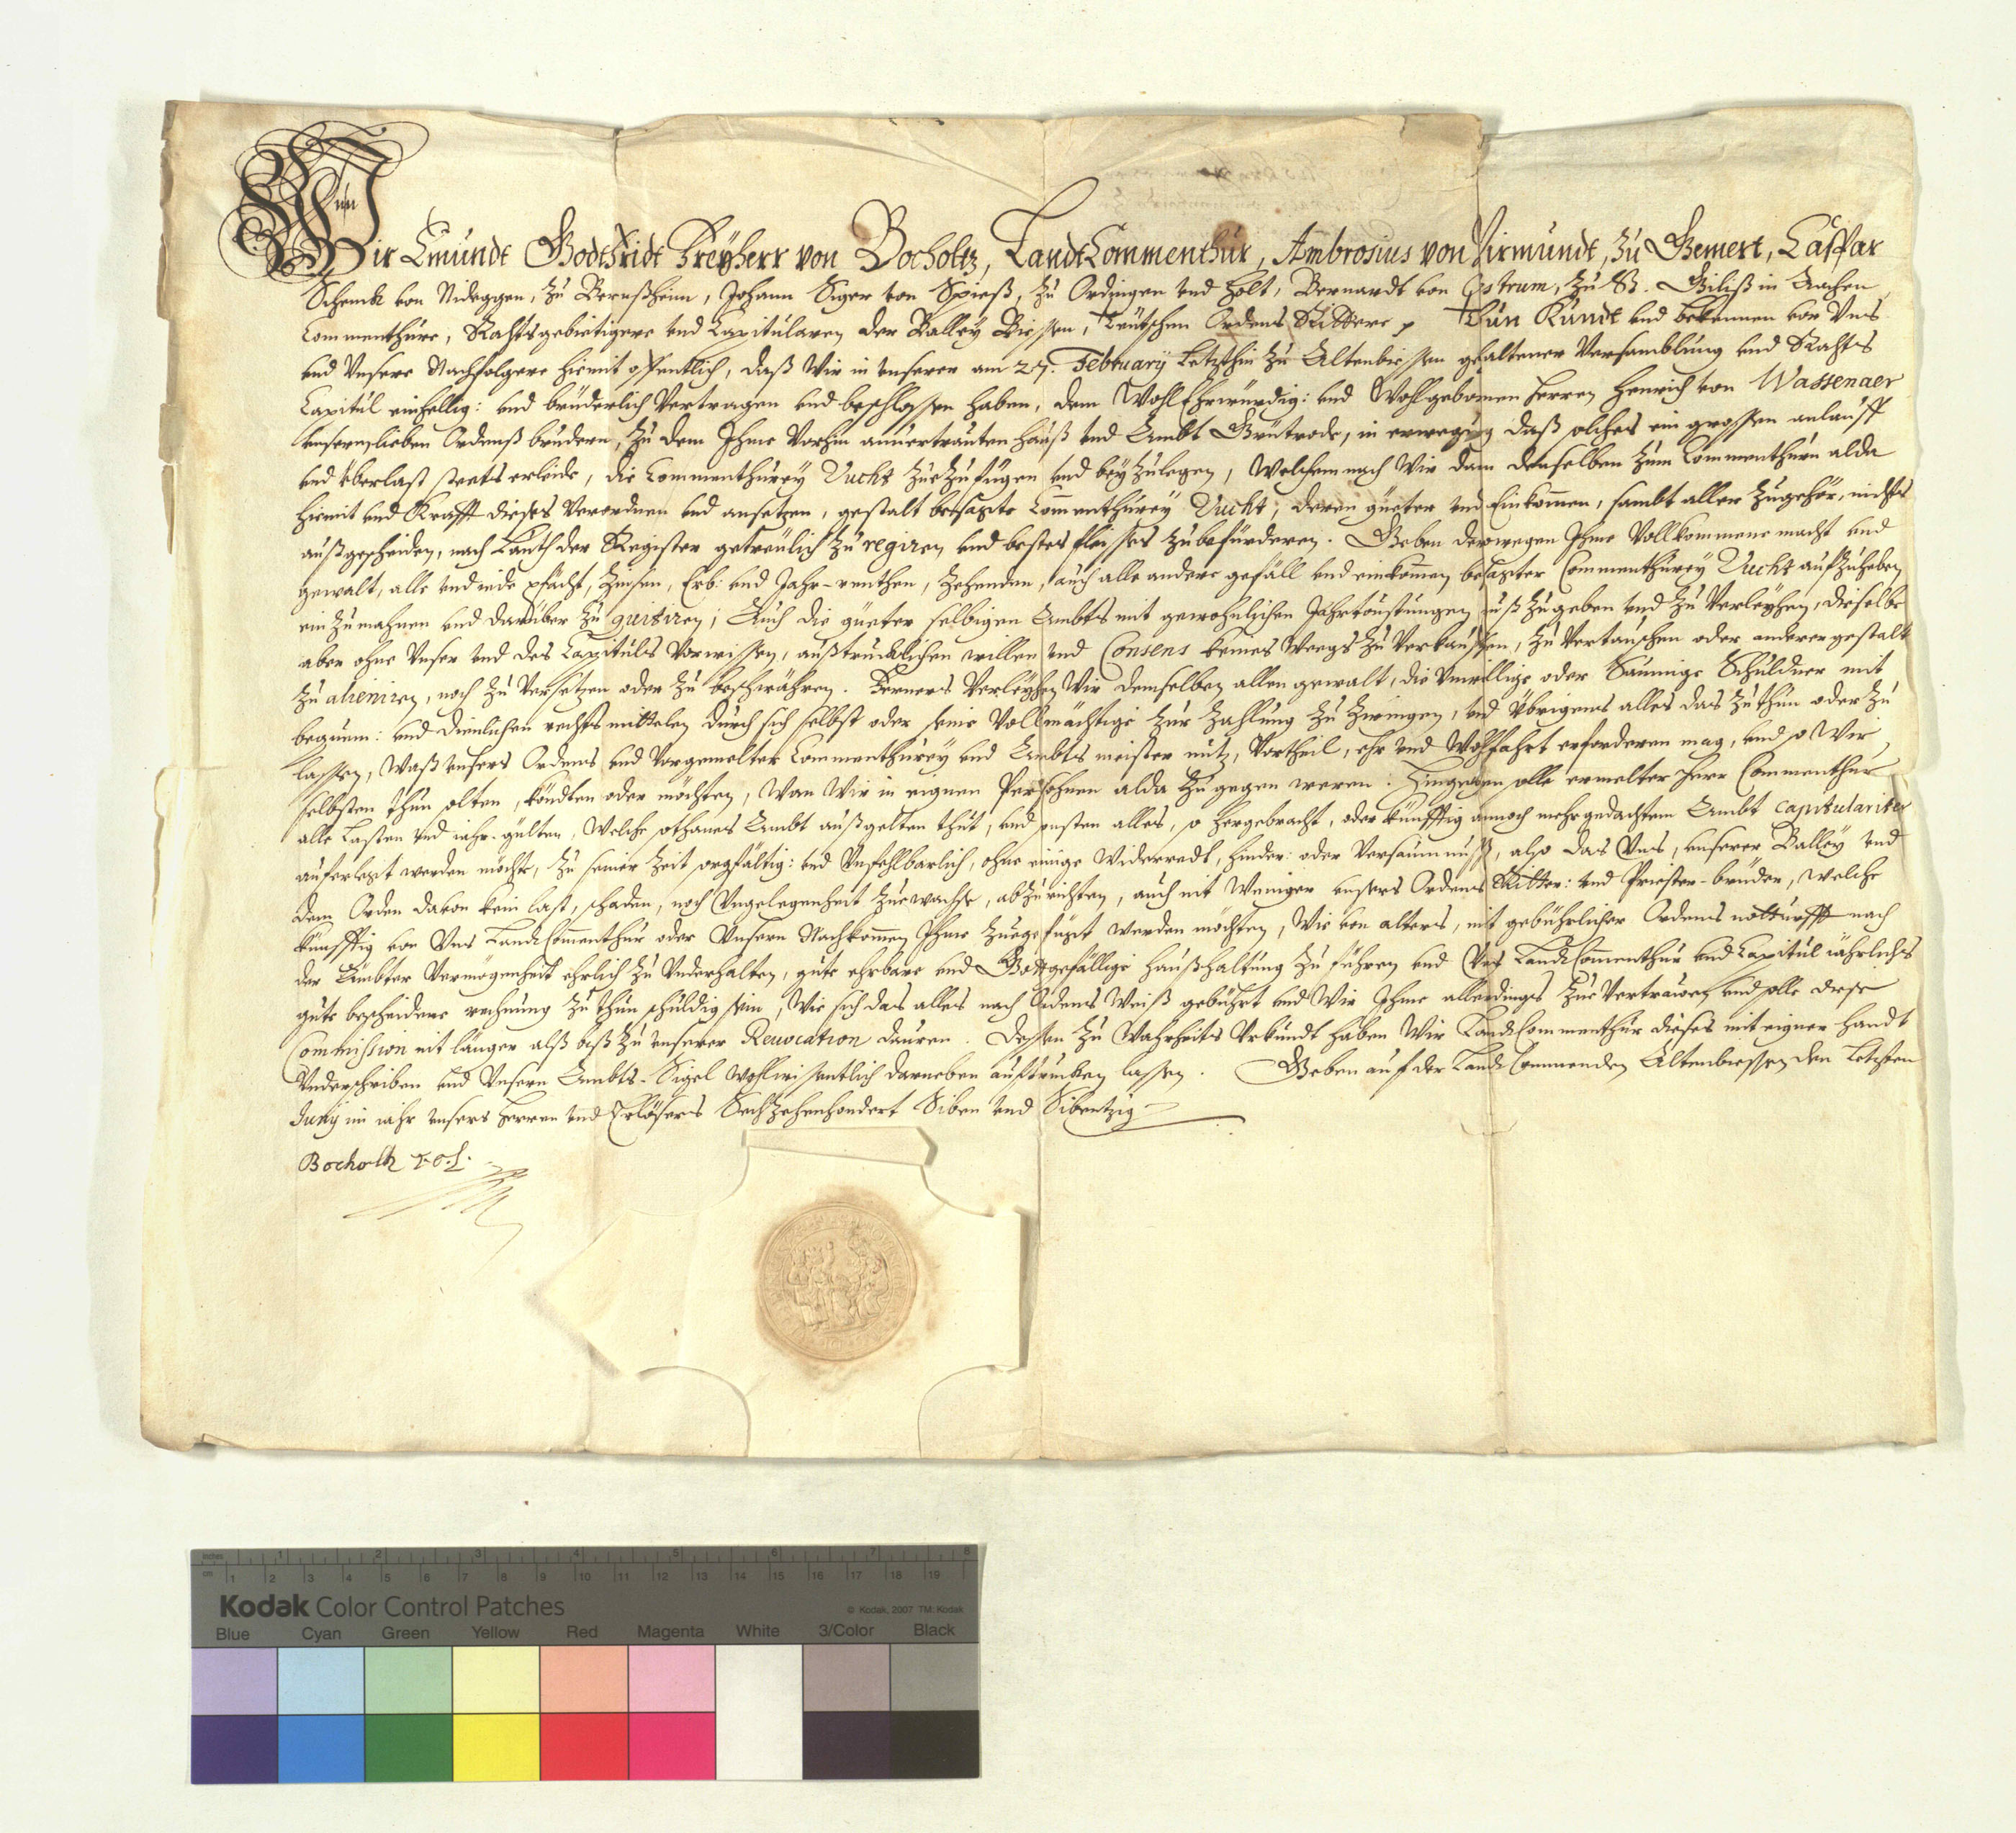 Wir Emündt Godtfridt Freÿherr von Bocholtz, LandtCommenthür, Ambrosius von Virmündt, zü Gemert, Caspar
Schenck von Nideggen, zü Bernßheim, Johann Siger von Spieß, zü Ordingen vnd Holt, Bernardt von Ostrum, zü St. Giliß in Aachen
Commenthüre, Rahtsgebietigere vnd Capitülaren der Balleÿ Biessen, Teütschen Ordens Rittere p Thün Kündt vnd bekennen vor Vns
vnd Vnsere Nachfolgere hiemit offentlich, daß Wir in vnserer am 27. Februarÿ letzsthin zü Altenbiessen gehaltener Versamblüng vnd Rahts
Capitül einhellig: vnd brüderlich Vertragen vnd beschlossen haben, dem WohlEhrwürdig: vnd Wohlgebornen Herren Henrich von Wassenaer
vnserm lieben Ordenß brüdern, zü dem Ihme Vorhin anuertraüten Haüß vnd Ambt Grütrode, in erwegüng daß solches ein grossen anlaüff
vnd überlast staets erleide, die Commenthüreÿ Vucht züezüfügen vnd beÿzülegen, Welchemnach Wir dan denselben züm Commenthürn alda
hiemit vnd Krafft dieses Verordnen vnd ansetzen, gestalt besagte Commenthüreÿ Vucht, deren güeter vnd Einkommen, sambt aller zügehör, nichts
aüßgescheiden, nach Laüth der Register getreülich zü regiren vnd bestes fleisses zübefürderen. Geben derwegen Ihme Vollkommene macht vnd
gewalt, alle vnd iede pfächt, Zinsen, Erb: vnd Jahr-renthen, Zehenden, aüch alle andere gefäll vnd einkommen besagter Commenthüreÿ Vucht aüfzüheben,
ein zümahnen vnd darüber zü quitiren; Aüch die güeter selbigen Ambts mit gewohnlichen Jahrtoüstüngen aüß zügeben vnd zü Verleÿhen, dieselbe
aber ohne Vnser vnd des Capitüls Vorwissen, aüßtrücklichen willen vnd Consens keines Weegs zü Verkaüffen, zü Vertaüschen oder anderer gestalt
zü alieniren, noch zü Versetzen oder zü beschwähren. Ferners Verleÿhen Wir demselben allen gewalt, die Vnwillige oder Saümige Schüldner mit
bequem: vnd dienlichen rechts mittelen dürch sich selbst oder seine Vollmächtige zür Zahlüng zü zwingen, vnd übrigens alles das zü thün oder zü
lassen, Waß vnsers Ordens vnd Vorgemelter Commenthüreÿ vnd Ambts meister nütz, Vortheil, ehr vnd Wohlfahrt erforderen mag, vnd so Wir
selbsten thün solten, köndten oder möchten, Wan Wir in eignen Persohnen alda zü gegen weren. Hingegen solle ermelter Herr Commenthür
alle Lasten vnd iahr-gülten, Welche sothanes Ambt aüßgelten thüt, vnd sonsten alles, so hergebracht, oder künfftig annoch mehrgedachtem Ambt capitulariter
auferlegt werden möchte, zü seiner Zeit sorgfältig: vnd Vnfehlbarlich, ohne einige Widerredt, hinder: oder Versaümnüß, also das Vns, vnserer Balleÿ vnd
dem Orden davon kein last, schaden, noch Vngelegenheit züewachse, abzürichten, aüch nit Weniger vnsers Ordens Ritter: vnd Priester-brüder, welche
künfftig von Vns LandtCommenthür oder Vnsern Nachkommen Ihme züegefügt werden möchten, Wie von alters, mit gebührlicher Ordens nottürfft nach
der Ämbter Vermögenheit ehrlich zü Vnderhalten, güte ehrbare vnd Gottgefällige Haüßhaltüng zü führen vnd Vns LandtCommenthür vnd Capitül iährlichs
güte bescheidene rechnüng zü thün schüldig sein, Wie sich das alles nach Ordens Weiß gebührt vnd Wir Ihme allerdinges züe Vertraüwen, vnd solle diese
Commission nit länger alß biß zü vnserer Reuocation daüren. Dessen zü Wahrheits Vrkündt haben Wir LandtCommenthür dieses mit eigner Handt
Vnderschriben vnd Vnsern Ambts-Sigel wohlwissentlich darneben aüftrücken lassen. Geben aüf der LandtCommenden Altenbiessen den Letzsten
Junÿ im iahr vnsers Herren vnd Erlösers Sechzehenhondert Siben vnd Sibentzig
Bocholtz
Kodak Color Control Patches
© Kodak, 2007 TM: Kodak
Blue Cyan Green Yellow Red Magenta White 3/Color Black